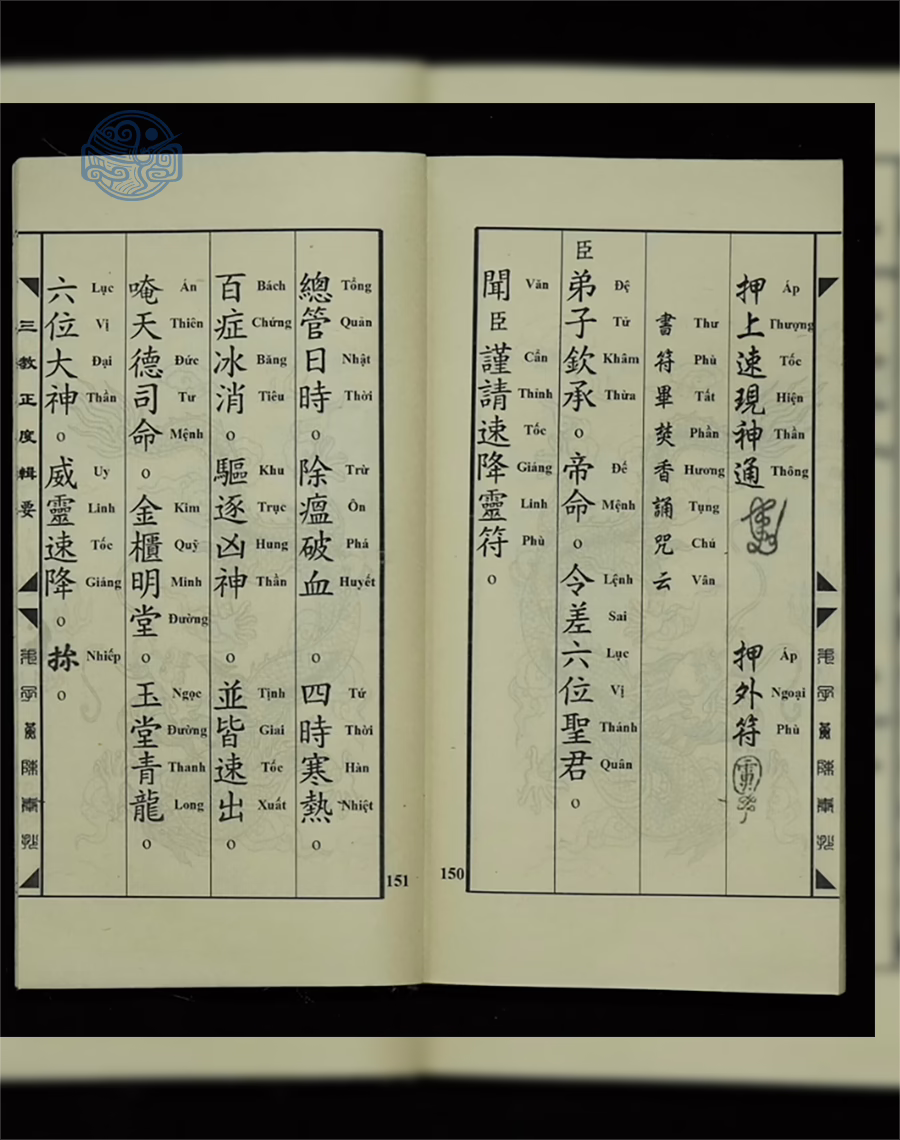 押上速現神通
Áp Thượng Tốc Hiện Thần Thông
押外符
Áp Ngoại Phù
書符畢焚香誦咒云
Thư Phù Tất Phần Hương Tụng Chú Vân
臣弟子欽承o帝命o令差六位聖君o
Đệ Tử Khâm Thừa Đế Mệnh Lệnh Sai Lục Vị Thánh Quân
聞臣謹請速降靈符o
Văn Cẩn Thỉnh Tốc Giáng Linh Phù
150
總管日時o除瘟破血o四時寒熱o
Tổng Quản Nhật Thời Trừ Ôn Phá Huyết Tứ Thời Hàn Nhiệt
百症冰消o驅逐凶神o並皆速出o
Bách Chứng Băng Tiêu Khu Trục Hung Thần Tịnh Giai Tốc Xuất
唵天德司命o金櫃明堂o玉堂青龍o
Án Thiên Đức Tư Mệnh Kim Quỹ Minh Đường Ngọc Đường Thanh Long
六位大神o威靈速降o㧱o
Lục Vị Đại Thần Uy Linh Tốc Giáng Nhiếp
三教正度輯要
151